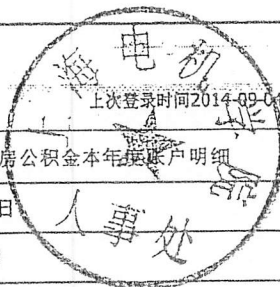 上次登录时间2014-09-0
房公积金本年度账户明细
日
海电机
人事处